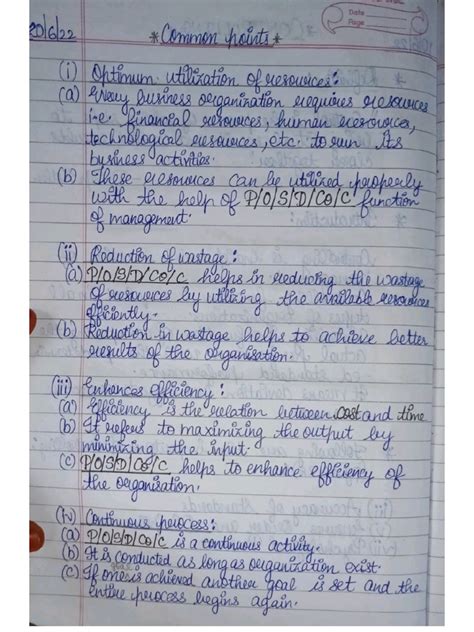 Date
Page
20/6/22
* Common points *
(i) Optimum utilization of resources:
(a) Every business organization requires resources
i.e. financial resources, human resources,
technological resources, etc. to run its
business activities.
(b) These resources can be utilized properly
with the help of P/O/S/D/Co/C function
of management.
(ii) Reduction of wastage:
(a) P/O/S/D/Co/C helps in reducing the wastage
of resources by utilizing the available resources
efficiently.
(b) Reduction in wastage helps to achieve better
results of the organisation.
(iii) Enhances efficiency:
(a) Efficiency is the relation between cost and time
(b) It refers to maximizing the output by
minimizing the input.
(c) P/O/S/D/Co/C helps to enhance efficiency of
the organisation.
(iv) Continuous process:
(a) P/O/S/D/Co/C is a continuous activity.
(b) It is conducted as long as organization exist.
(c) If one goal is achieved another goal is set and the
entire process begins again.